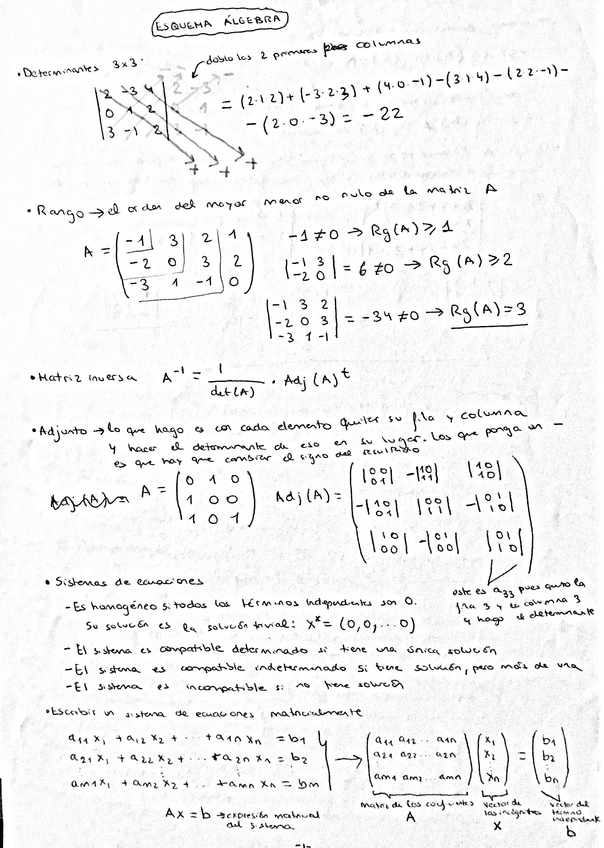 ESQUEMA ÁLGEBRA
• Determinantes 3x3: doblo las 2 primeras columnas
|2 -3 4| 2 -3 -
|0 1 2| 0 1 = (2·1·2)+(-3·2·3)+(4·0·-1)-(3·1·4)-(2·2·-1)-
|3 -1 2| -(2·0·-3) = -22
+ + +
• Rango → el orden del mayor menor no nulo de la matriz A
A = ( -1 3 2 1 -1≠0 → Rg(A)≥1
-2 0 3 2 |-1 3 -2 0| = 6≠0 → Rg(A)≥2
-3 1 -1 0 ) |-1 3 2 -2 0 3 -3 1 -1| = -34≠0 → Rg(A)=3
• Matriz inversa A⁻¹ = 1/det(A) · Adj(A)ᵗ
• Adjunto → lo que hago es con cada elemento quitar su fila y columna
y hacer el determinante de eso en su lugar. Los que ponga un -
es que hay que cambiar el signo del resultado
A = (0 1 0 Adj(A) = ( |0 0 0 1| -|1 0 1 1| |1 0 1 0|
1 0 0 -|1 0 0 1| |0 0 1 1| -|0 1 1 0|
1 0 1) |1 0 0 0| -|0 0 1 0| |0 1 1 0| )
este es a₃₃ pues quito la
fila 3 y la columna 3
y hago el determinante
• Sistemas de ecuaciones
- Es homogéneo si todos los términos independientes son 0.
Su solución es la solución trivial: X* = (0,0,...0)
- El sistema es compatible determinado si tiene una única solución
- El sistema es compatible indeterminado si tiene solución, pero más de una
- El sistema es incompatible si no tiene solución
• Escribir un sistema de ecuaciones matricialmente
a₁₁x₁ + a₁₂x₂ + ··· + a₁ₙxₙ = b₁ → (a₁₁ a₁₂ ... a₁ₙ) (x₁) = (b₁)
a₂₁x₁ + a₂₂x₂ + ··· + a₂ₙxₙ = b₂ (a₂₁ a₂₂ ... a₂ₙ) (x₂) (b₂)
aₘ₁x₁ + aₘ₂x₂ + ··· + aₘₙxₙ = bₘ (aₘ₁ aₘ₂ ... aₘₙ) (xₙ) (bₙ)
matriz de los coeficientes vector de las incógnitas vector del término independiente
A X b
Ax = b → expresión matricial
del sistema
-1-